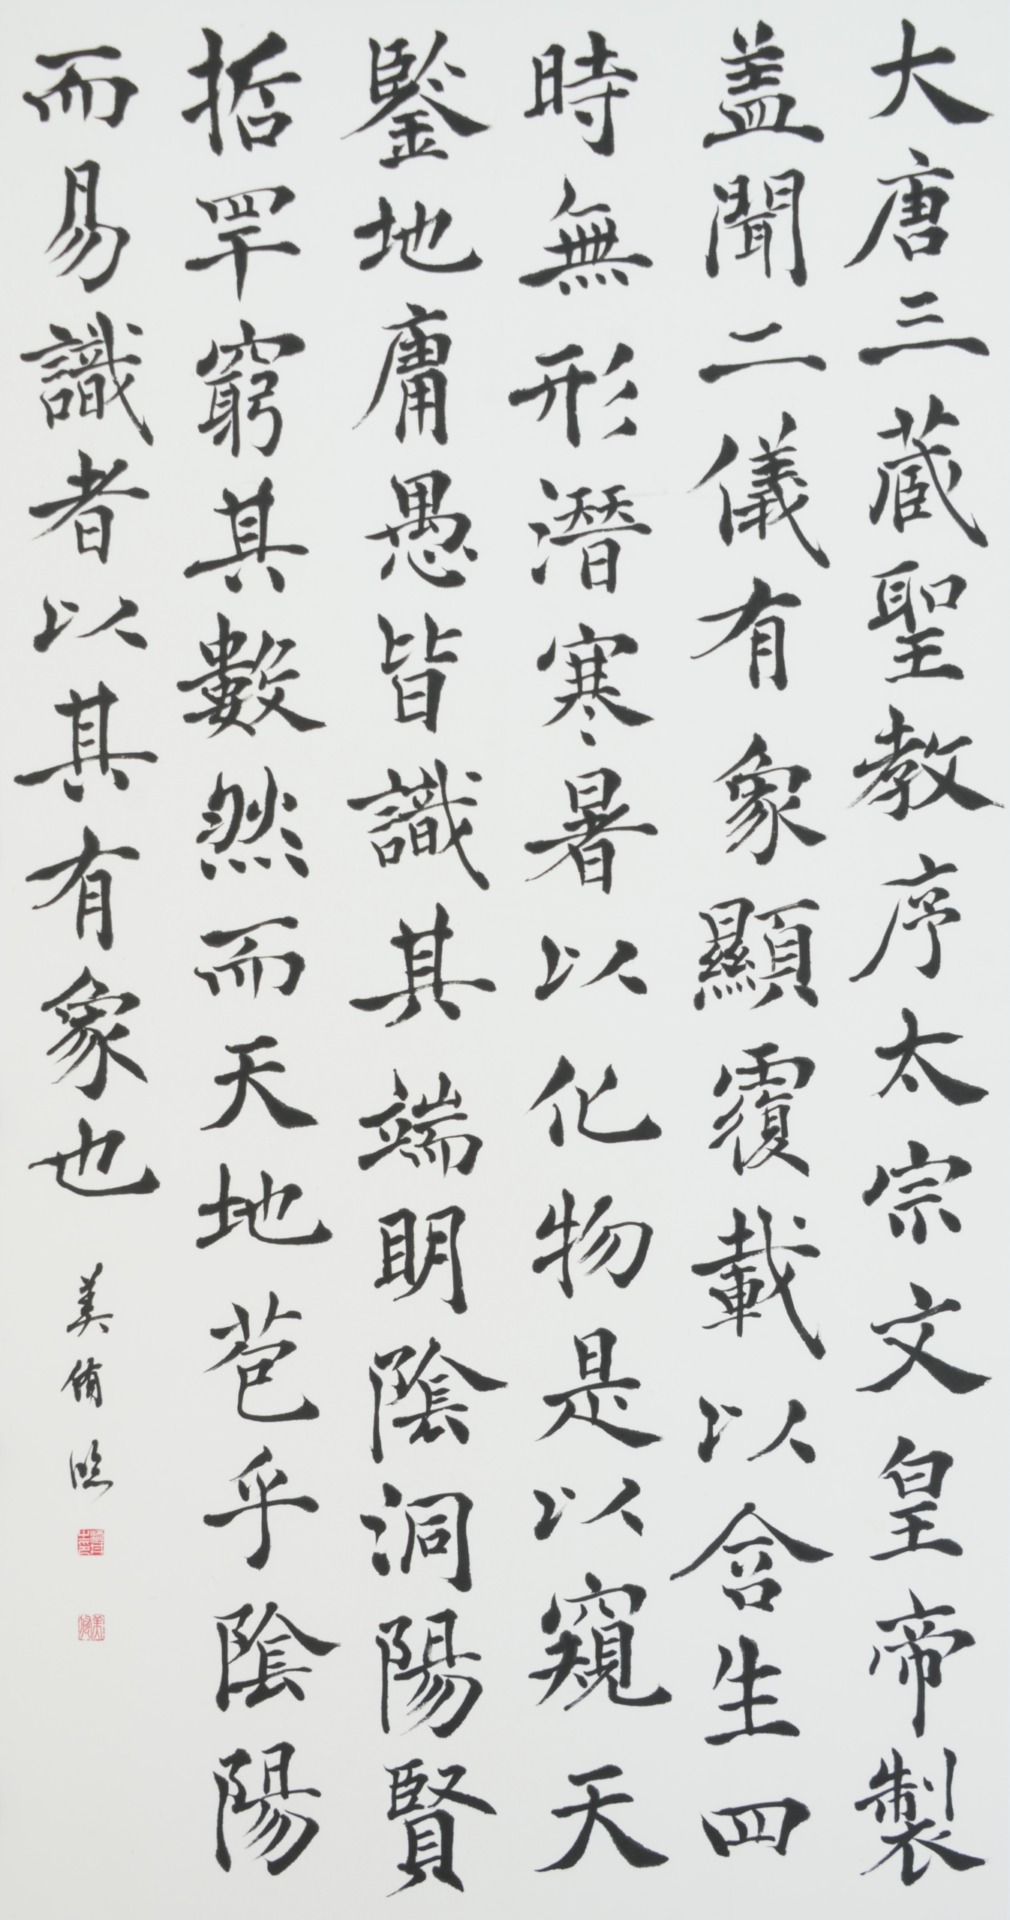 大唐三蔵聖教序太宗文皇帝製
盖聞二儀有象顯覆載以含生四
時無形潛寒暑以化物是以窺天
鑒地庸愚皆識其端明陰洞陽賢
哲罕窮其數然而天地苞乎陰陽
而易識者以其有象也
美脩臨